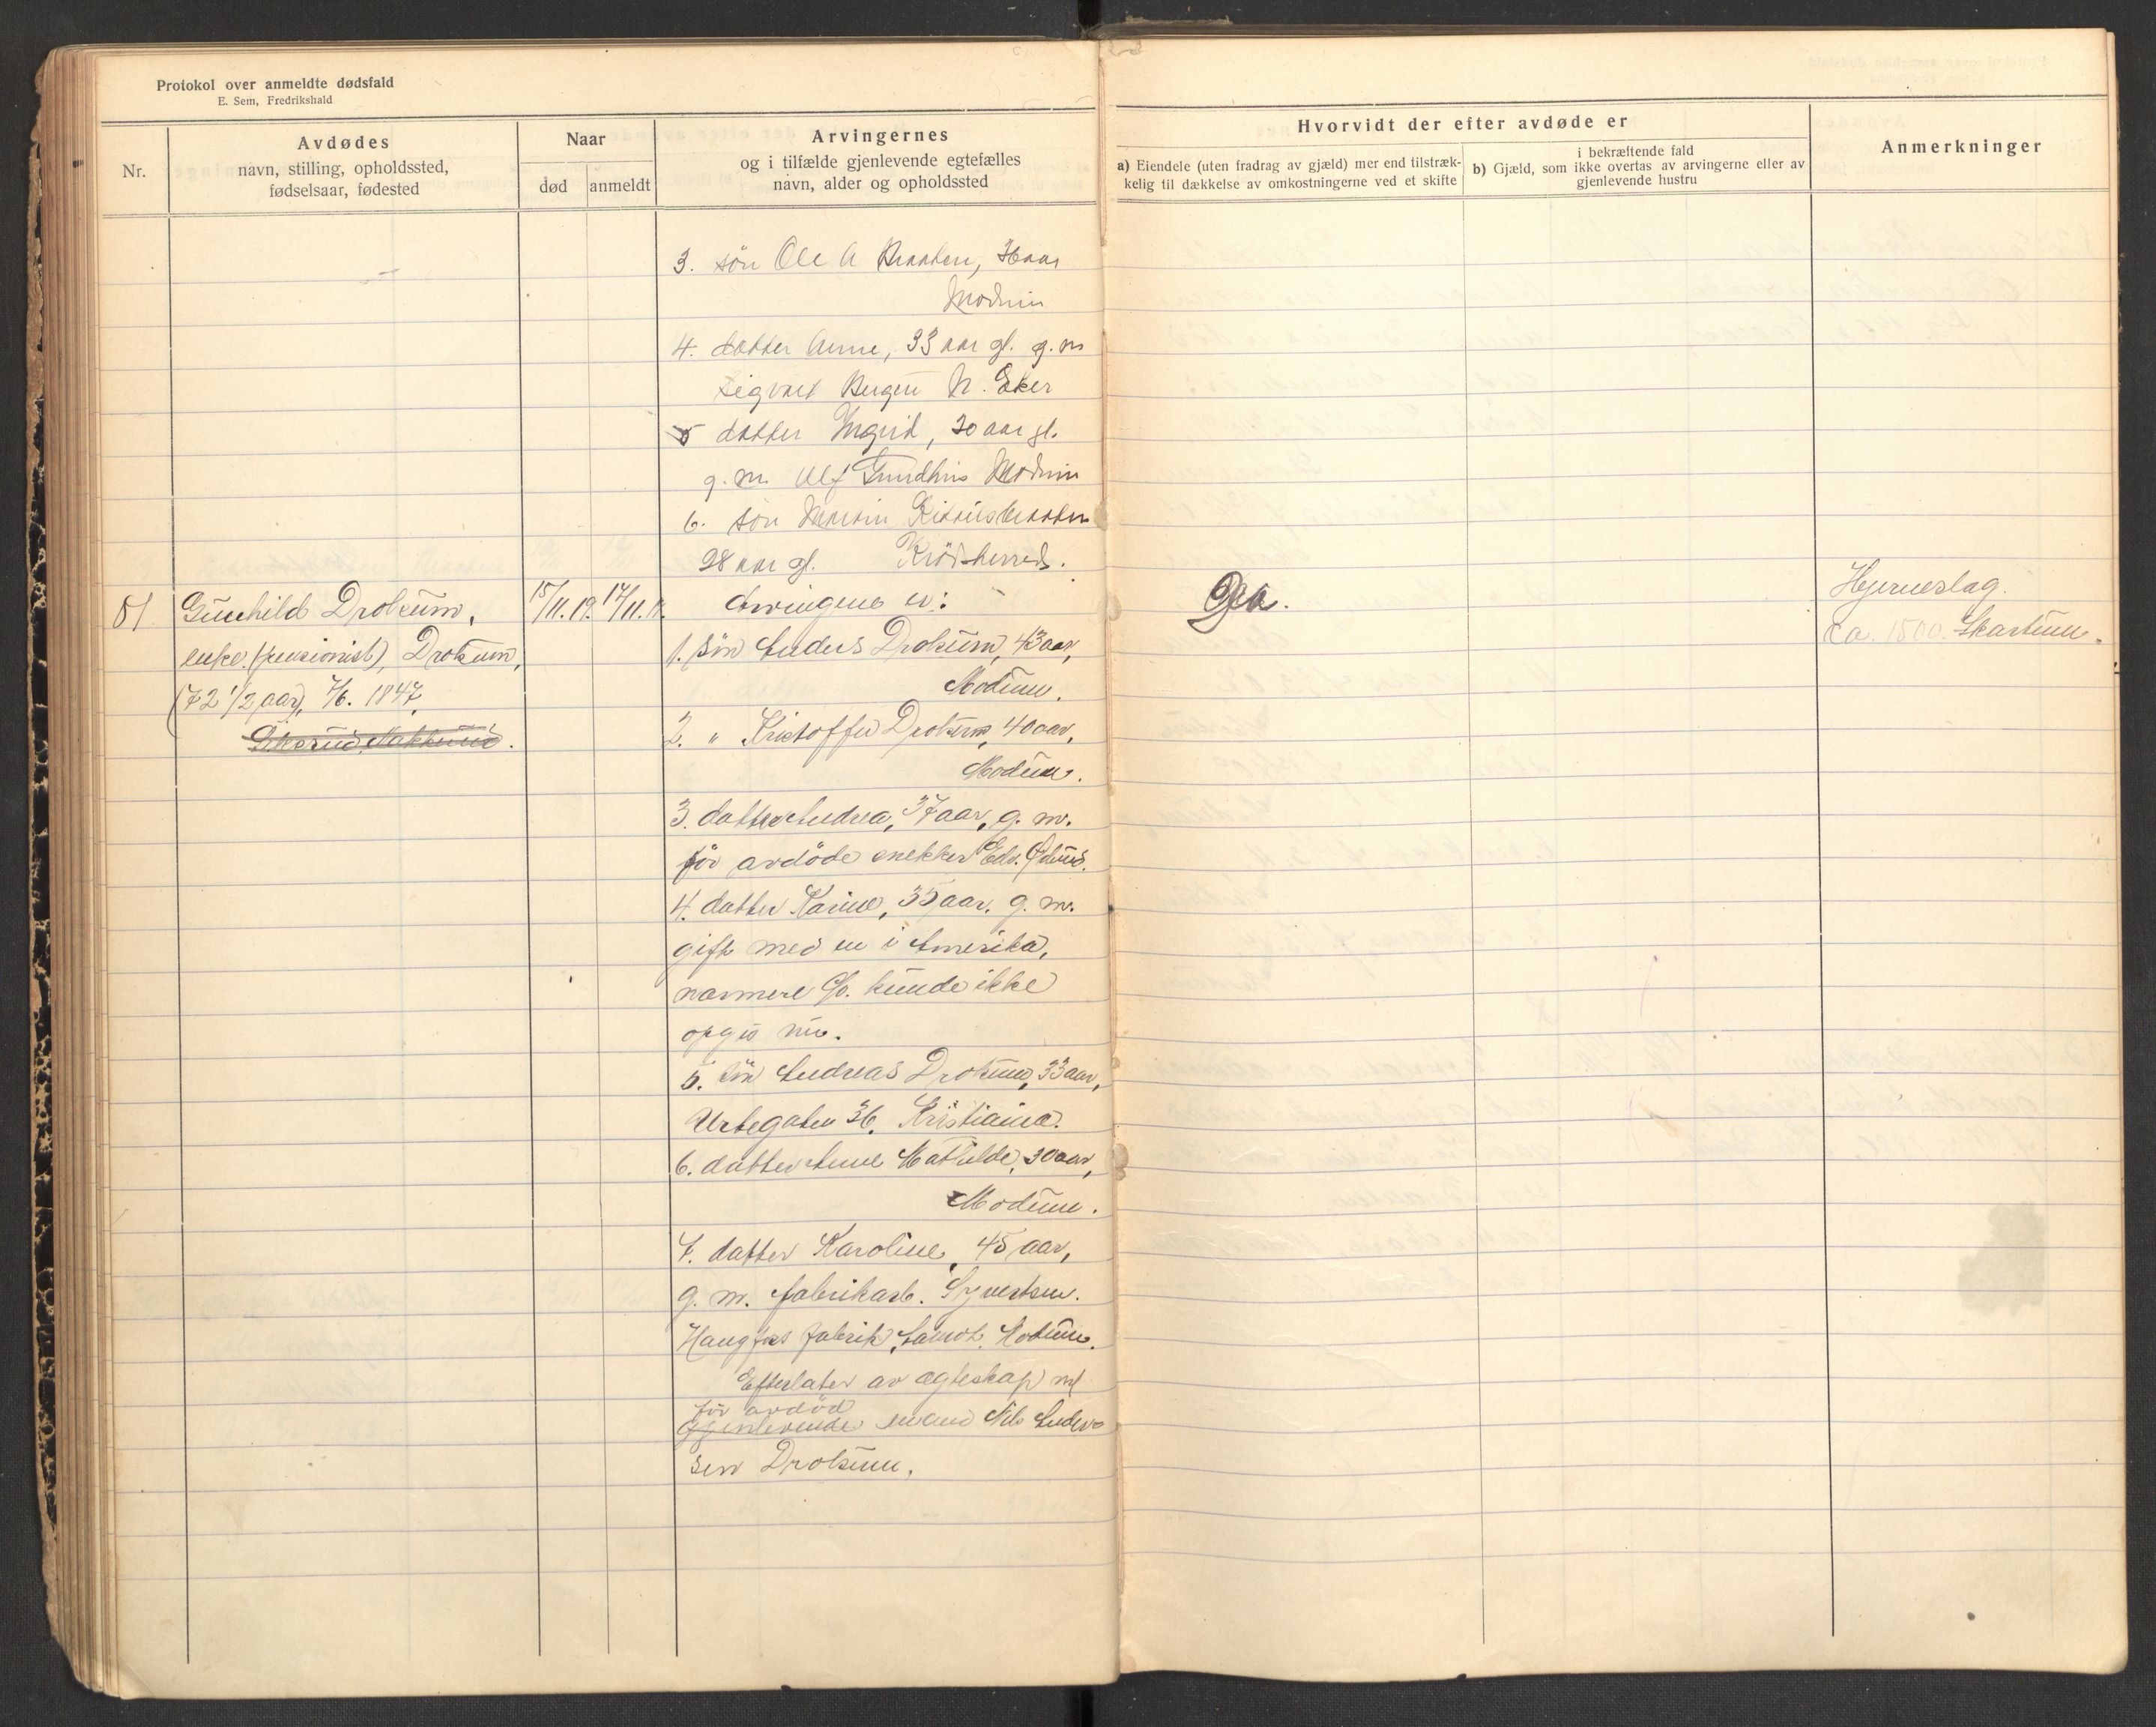 Protokol over anmeldte dødsfald
E. Sem, Fredrikshald
Nr.
Avdødes
navn, stilling, opholdssted,
fødselsaar, fødested
Naar
død
anmeldt
Arvingernes
og i tilfælde gjenlevende egtefælles
navn, alder og opholdssted
Hvorvidt der efter avdøde er
a) Eiendele (uten fradrag av gjæld) mer end tilstræk-
kelig til dækkelse av omkostningerne ved et skifte
i bekræftende fald
b) Gjæld, som ikke overtas av arvingerne eller av
gjenlevende hustru
Anmerkninger
3. søn Ole A Braaten, 36 aar
Modum
4. datter Anne, 33 aar gl. g. m
Sigvart Bergen N. Eker
5 datter Ingrid, 30 aar gl.
g. m. Alf Modum
6. søn Martin
28 aar gl. Krødsherred.
51
Gunhild Drolsum,
enke (pensionist), Drolsum,
(72 1/2 aar), 7/6. 1847,
15/11.19.
17/11.19.
Arvingene er:
1. søn Anders Drolsum, 43 aar,
Modum.
2. " Kristoffer Drolsum, 40 aar,
Modum.
3. datter Andrea, 37 aar, g. m.
før avdøde snekker Edv.
4. datter Karine, 35 aar. g. m.
gift med en i Amerika,
nærmere kunde ikke
opgis nu.
5. søn Andreas Drolsum, 33 aar,
Urtegaten 36, Kristiania.
6. datter Anne Mathilde, 30 aar,
Modum.
7. datter Karoline, 45 aar,
g. m. fabrikarb. Syvertsen.
Haugfos fabrik, Aamot, Modum.
Efterlater av egteskap m/
før avdød
gjenlevende mand Nils Anders
sen Drolsum.
Ja.
Hjerneslag.
Ca. 1500. Skartum.